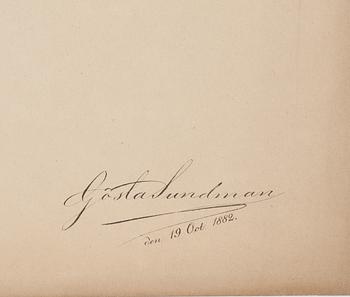 Gösta Sundman
den 19 Oct 1882.